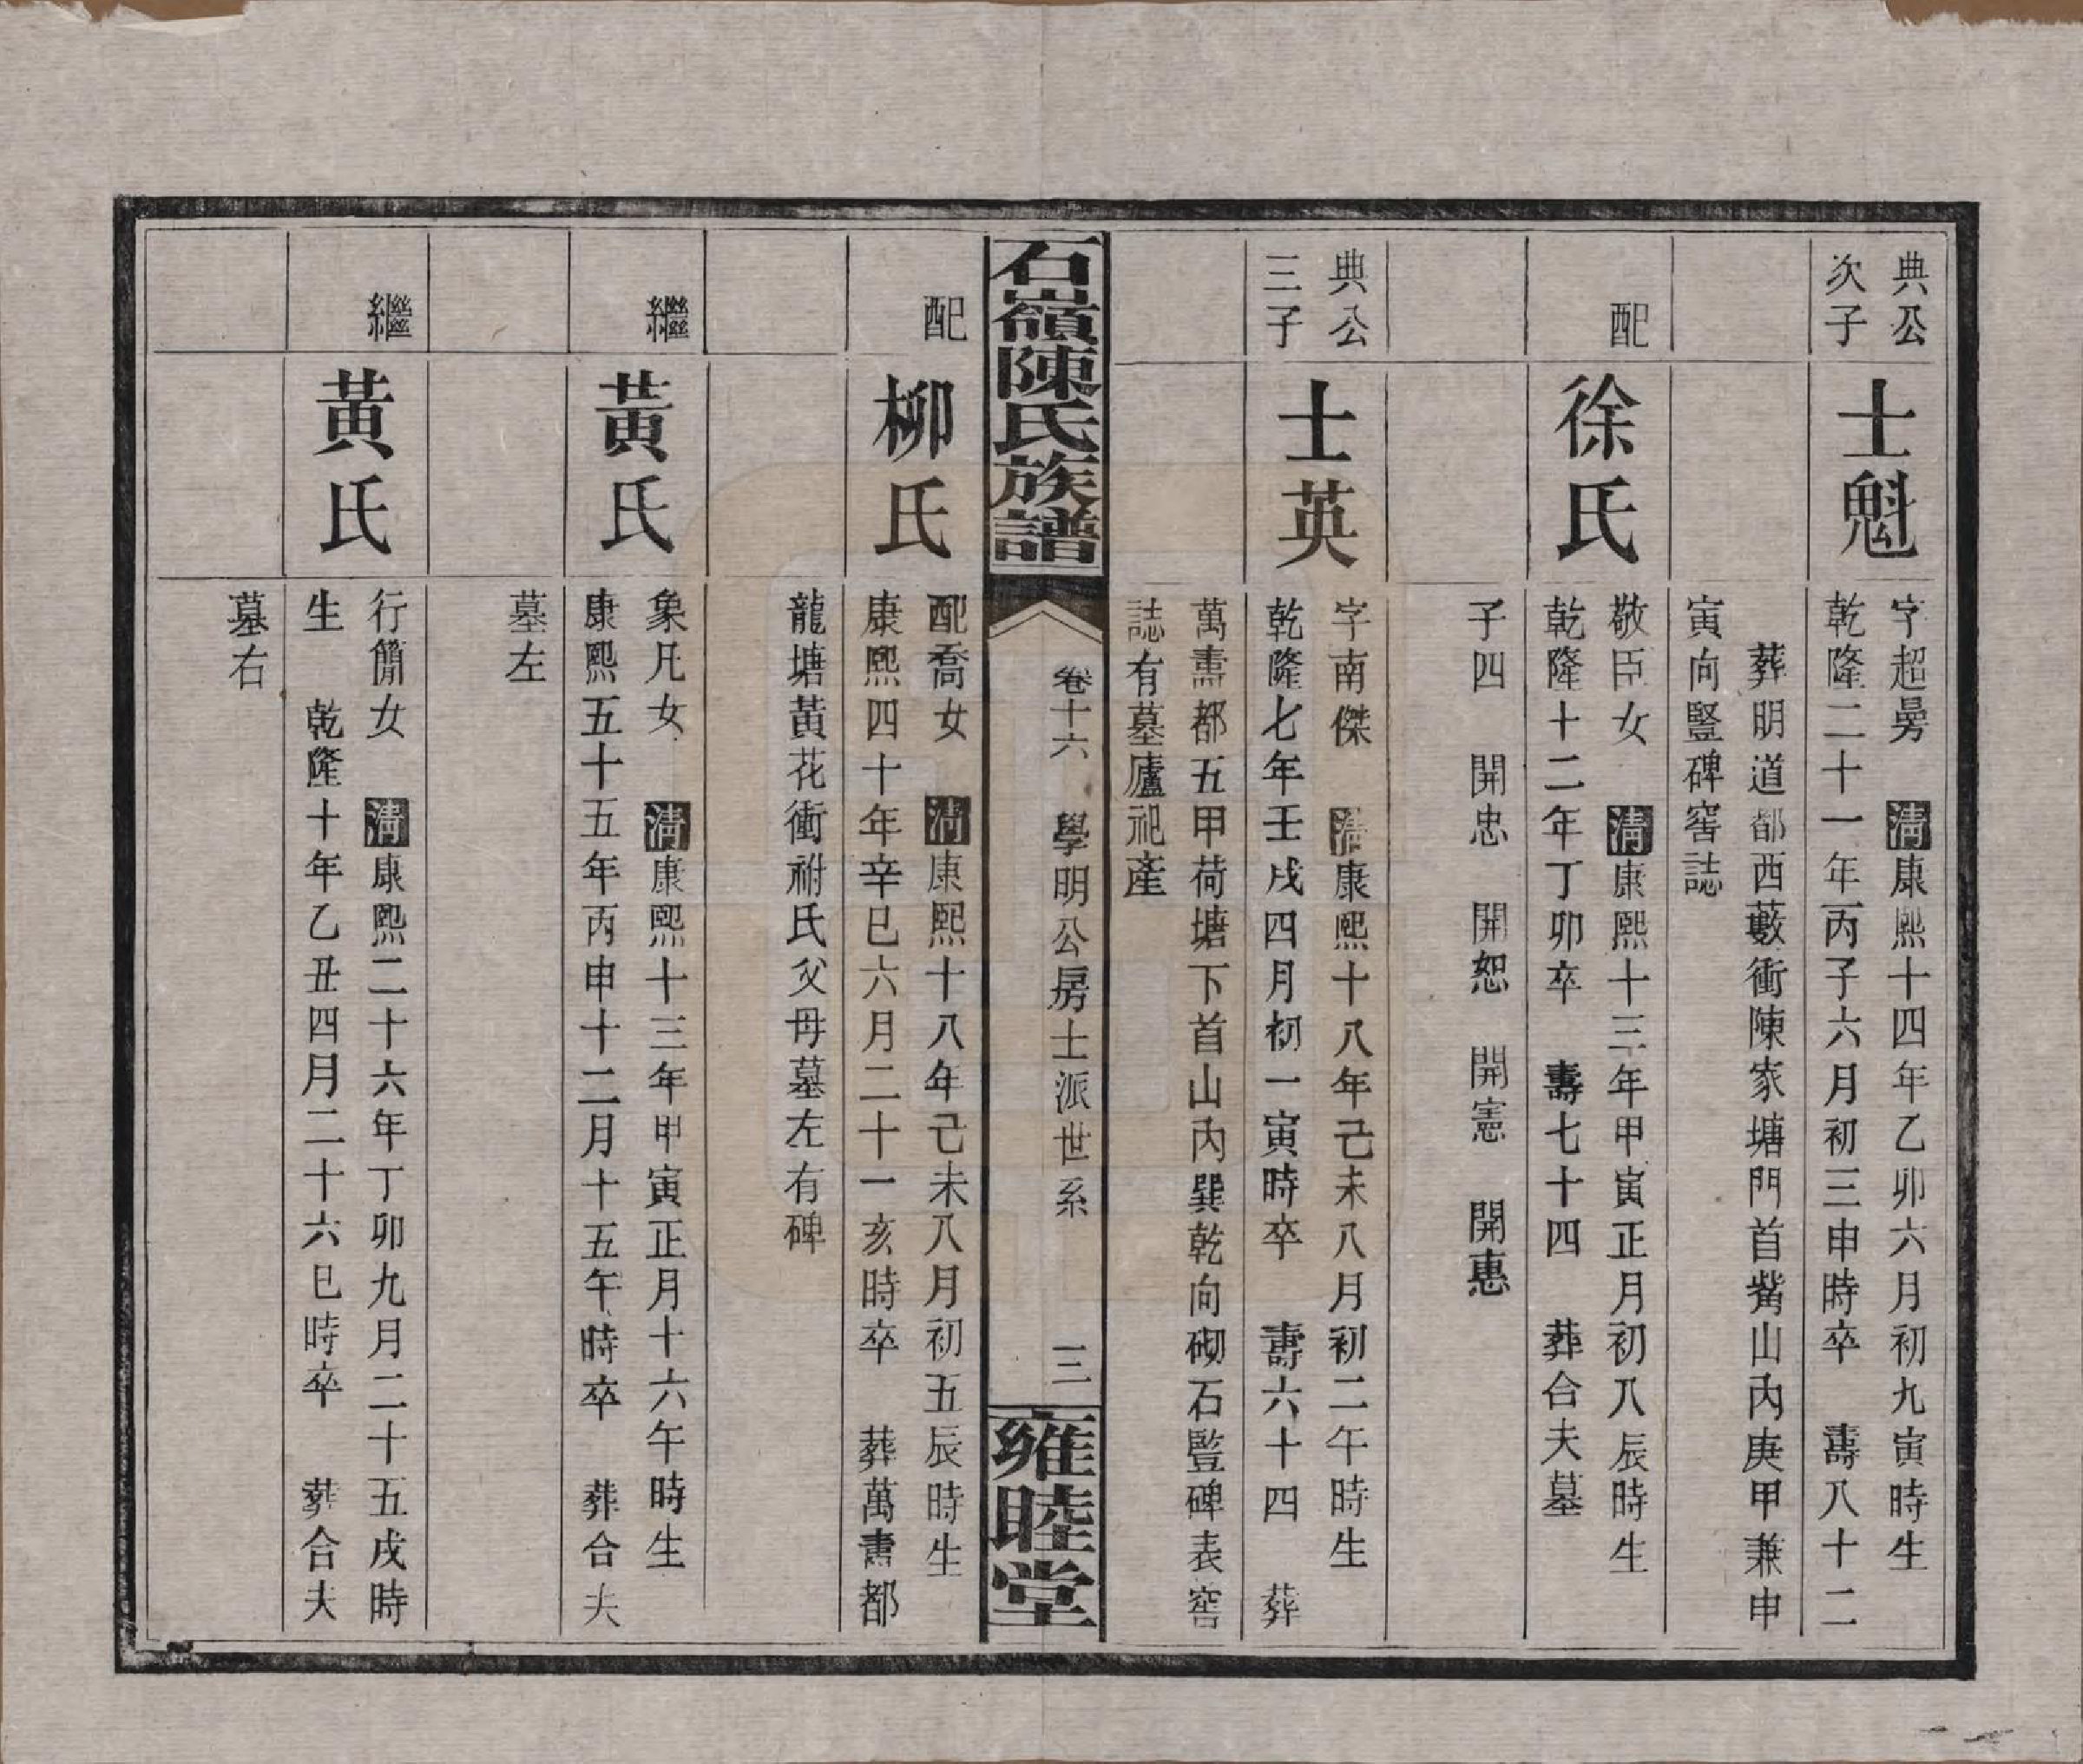 典公
次子
士魁
字超勇 清康熙十四年乙卯六月初九寅時生
乾隆二十一年丙子六月初三申時卒 壽八十二
葬明道都西藪衝陳家塘門首觜山內庚甲兼申
寅向豎碑窖誌
配
徐氏
敬臣女 清康熙十三年甲寅正月初八辰時生
乾隆十二年丁卯卒 壽七十四 葬合夫墓
子四 開忠 開恕 開憲 開惠
典公
三子
士英
字南傑 清康熙十八年己未八月初二午時生
乾隆七年壬戌四月初一寅時卒 壽六十四 葬
萬燾都五甲荷塘下首山內巽乾向砌石豎碑表窖
誌有墓廬祀產
石嶺陳氏族譜
卷十六 學明公房士派世系
三
雍睦堂
配
柳氏
配喬女 清康熙十八年己未八月初五辰時生
康熙四十年辛巳六月二十一亥時卒 葬萬燾都
龍塘黃花衝祔氏父母墓左有碑
繼
黃氏
象凡女 清康熙十三年甲寅正月十六午時生
康熙五十五年丙申十二月十五午時卒 葬合夫
墓左
繼
黃氏
行簡女 清康熙二十六年丁卯九月二十五戌時
生 乾隆十年乙丑四月二十六巳時卒 葬合夫
墓右